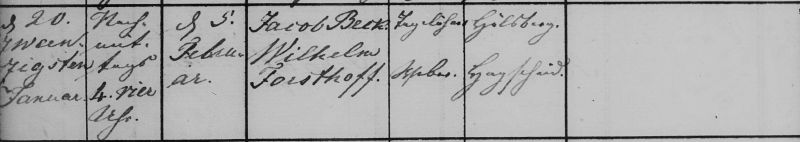 d 20.
zwan-
zigsten
Januar.
Nach-
mit-
tags
4. vier
Uhr.
d 5.
Febru-
ar.
Jacob Beck.
Wilhelm
Forsthoff.
Tagelöhner
Weber.
Hülsberg.
Hayscheid.